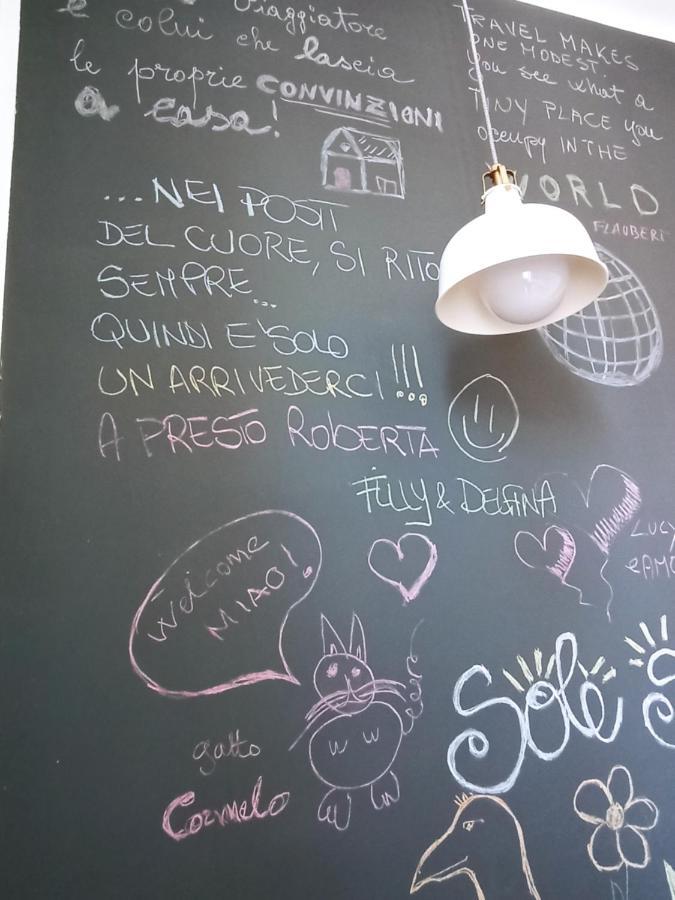 è
viaggiatore
e colui che lascia
le proprie CONVINZIONI
a casa!
TRAVEL MAKES
ONE MODEST.
You see what a
TINY PLACE you
occupy IN THE
WORLD
FLAUBERT
...NEI POSTI
DEL CUORE, SI RITO
SEMPRE...
QUINDI E' SOLO
UN ARRIVEDERCI!!!
A PRESTO ROBERTA
FILLY & DELFINA
LUCY
eAMO
Welcome
MIAO!
Sole
S
gatto
Carmelo